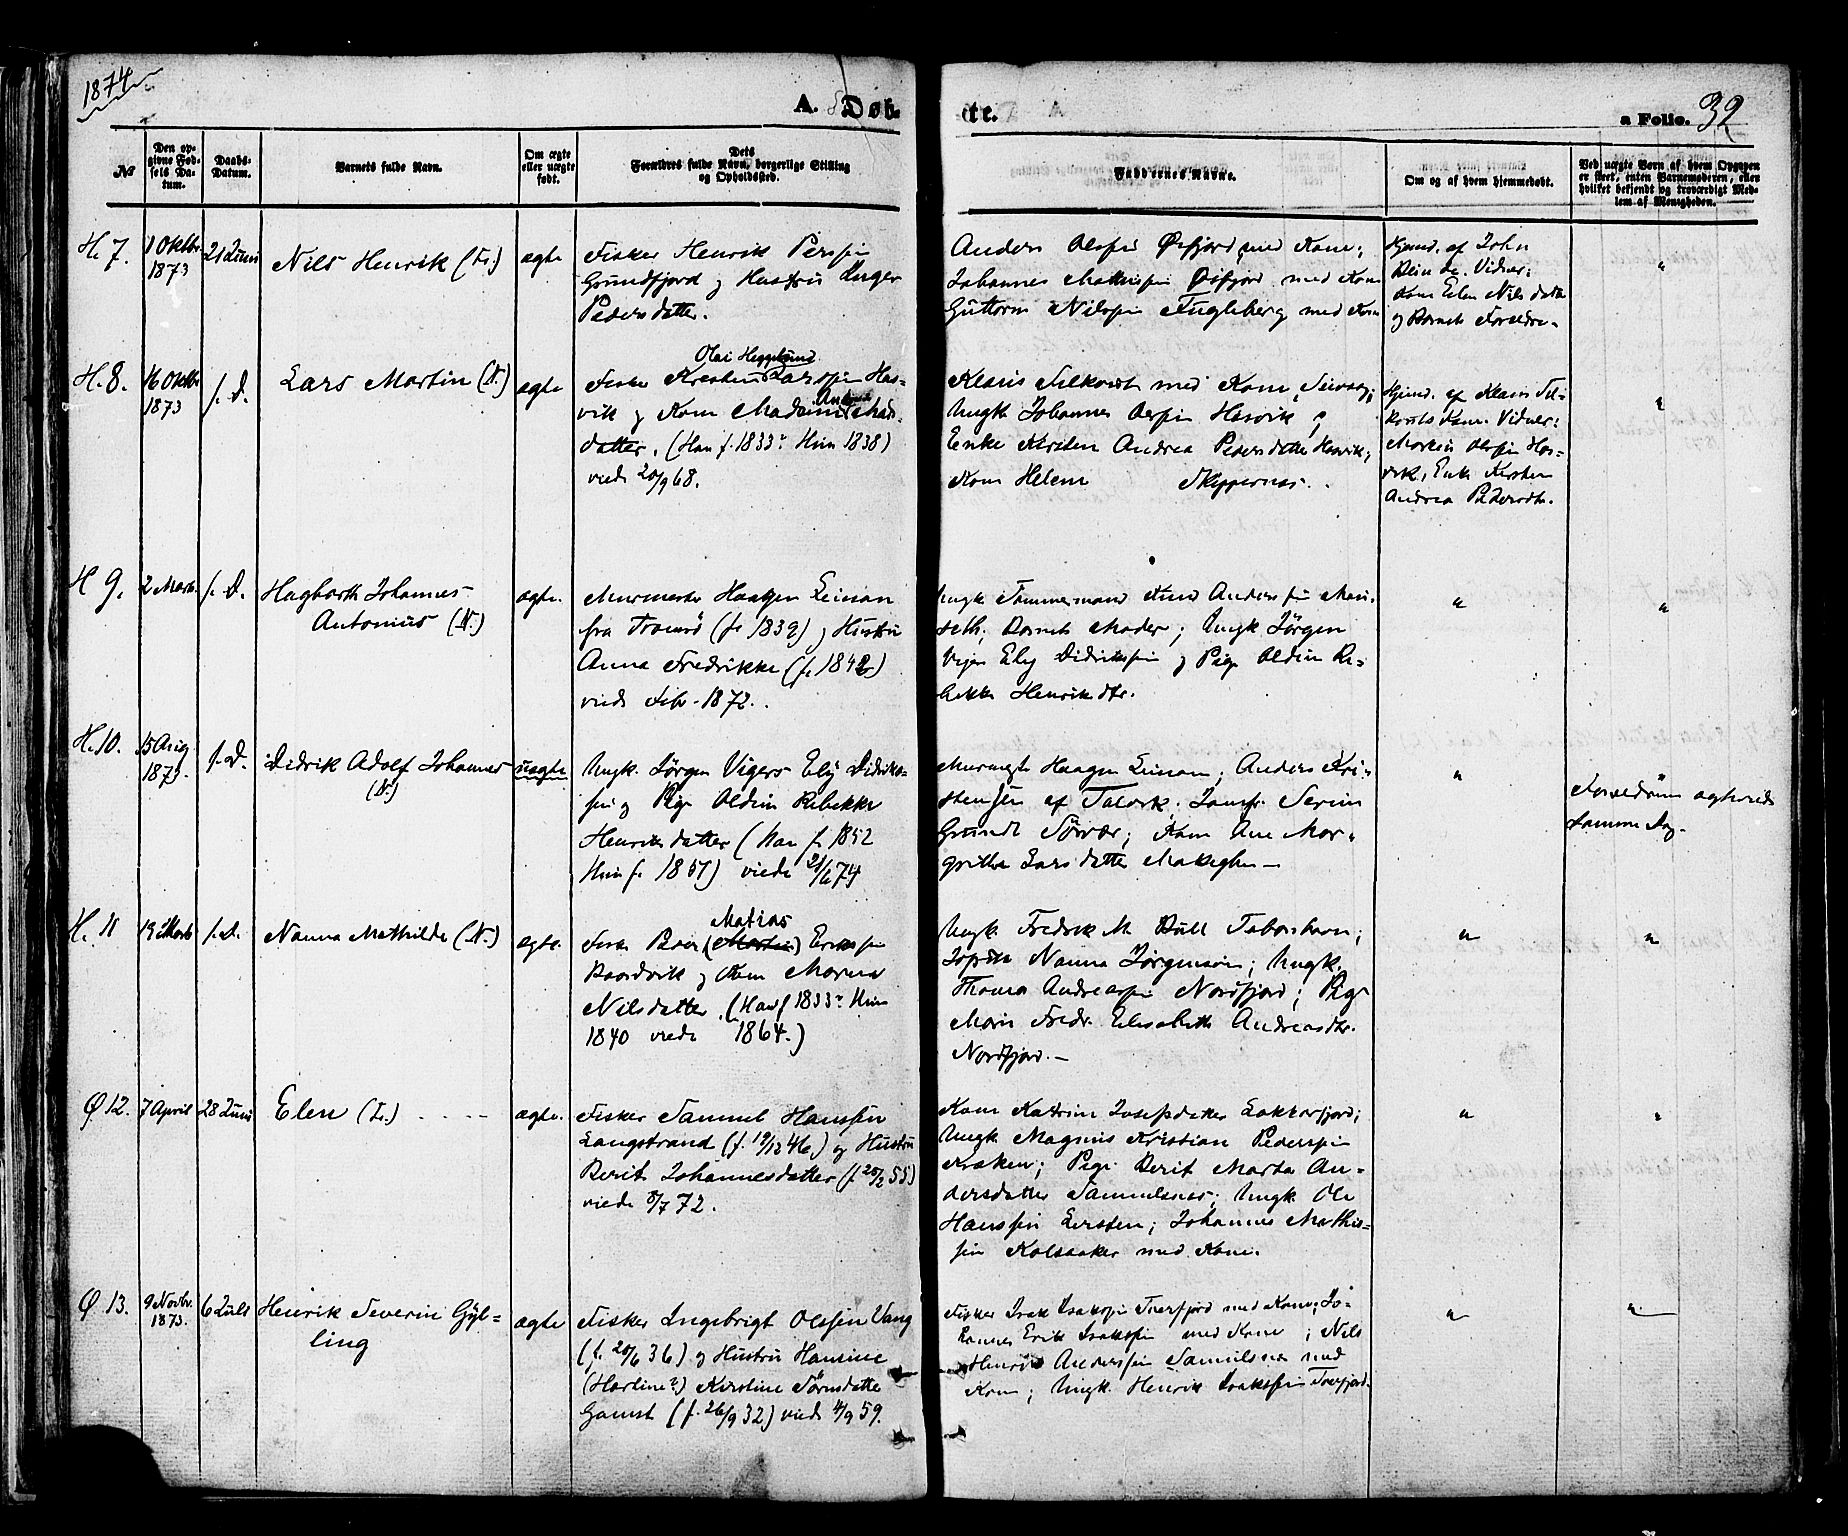 1874
A. Døb-
te.
a Folio. 32
№
Den op-
givne Fød-
sels Da-
tum.
Daabs-
Datum.
Barnets fulde Navn.
Om ægte
eller uægte
født.
Dets
Forældres fulde Navn, borgerlige Stilling
og Opholdssted.
Faddernes Navne.
Om og af hvem hjemmedøbt.
Ved uægte Børn af hvem Opgaven
er skeet, enten Barnemoderen, eller
hvilket bekjendt og troværdigt Med-
lem af Menigheden.
H. 7.
1 Oktbr
1873
21 Juni
Nils Henrik (L.)
ægte
Fisker Henrik Persen
Grundfjord og Hustru Inger
Pedersdatter.
Anders Olsen Øxfjord med Kone;
Johannes Mathisen Øxfjord med Kone
Guttorm Nilssen Fugleberg med Kone
Hjemd. af John
Vidner:
Kone Elen Nilsdatter
og Barnets Forældre.
"
H. 8.
16 Oktbr
1873
s. D.
Lars Martin (N.)
ægte
Olai Heggelund
Fisker Kresten Larssen Has-
vik og Kone
datter. (Han f. 1833. Hun 1838)
viede 20/9 68.
Klaus Filkorst med Kone,
Ungk Johannes Olsen Hasvik;
Enke Kirsten Andrea Pedersdatter Hasvik;
Kone Helene
Hjemd. af Klaus Fil-
korsts Kone. Vidner:
Morten Olsen Has-
vik, Enke Kirsten
Andrea Pedersdtr.
"
H 9.
2 Marts
s. D.
Hagbarth Johannes
Antonius (N.)
ægte.
Murmester Haagen Leinan
fra Tromsø (f. 1839) og Hustru
Anna Fredrikke (f. 1842)
viede Febr. 1872.
Ungk Tømmermand Knud Anderssen
Barnets Moder; Ungk Jørgen
Ely Didriksen og Pige Oldine Re-
bekke Henriksdtr.
"
"
H. 10.
15 Aug
1873.
s. D.
Didrik Adolf Johannes
(N.)
uægte
Ungk. Jørgen Vigers Ely Didrik-
sen og Pige Oldine Rebekke
Henriksdatter (Han f. 1852
Hun f. 1851) viede 21/6 74
Haagen Leinan; Anders Kri-
stensen af Talvik; Jomfr. Serine
Grundt Sørvær; Kone Ane Mar-
grethe Larsdatter
"
Forældrene ægteviede
samme Dag.
H. 11
19 Marts
s. D.
Nanna Mathilde (N.)
ægte.
Matias
Peder (Martin) Eriksen
Baardvik og Kone Maren
Nilsdatter. (Han f 1833. Hun
1840 viede 1864.)
Ungk. Fredrik M. Bull
Nanna Jørgensen; Ungk.
Thomas Andreassen Nordfjord; Pige
Maren Fredr. Elisabeth Andreasdtr.
Nordfjord. —
"
"
Ø 12.
7 April
28 Juni
Elen (L.)
ægte.
Fisker Samuel Hanssen
Langstrand (f. 19/12 46.) og Hustru
Berit Johannesdatter (f. 20/2 55)
viede 8/7 72.
Kone Katrine Josefsdatter Lokkarfjord;
Ungk Magnus Kristian Pederssen
Kraken; Pige Berit Marta An-
dersdatter Samuelsnes; Ungk Ole
Hanssen Lersten; Johannes Mathis-
sen Kolsaaker med Kone.
"
"
Ø. 13.
9 Novbr.
1873.
6 Juli
Henrik Severin Gyl-
ling
ægte
Fisker Ingebrigt Olssen Vang
(f. 20/6 36) og Hustru Hansine
(Hartine?) Kirstine Sørensdatter
Gamst (f. 26/9 32) viede 4/9 59.
Fisker Isak Isaksen Tverfjord med Kone; Jo-
hannes Erik Isaksen med Kone; Nils
Henrik Anderssen Samuelsnes med
Kone; Ungk. Henrik Isaksen Tverfjord.
"
"